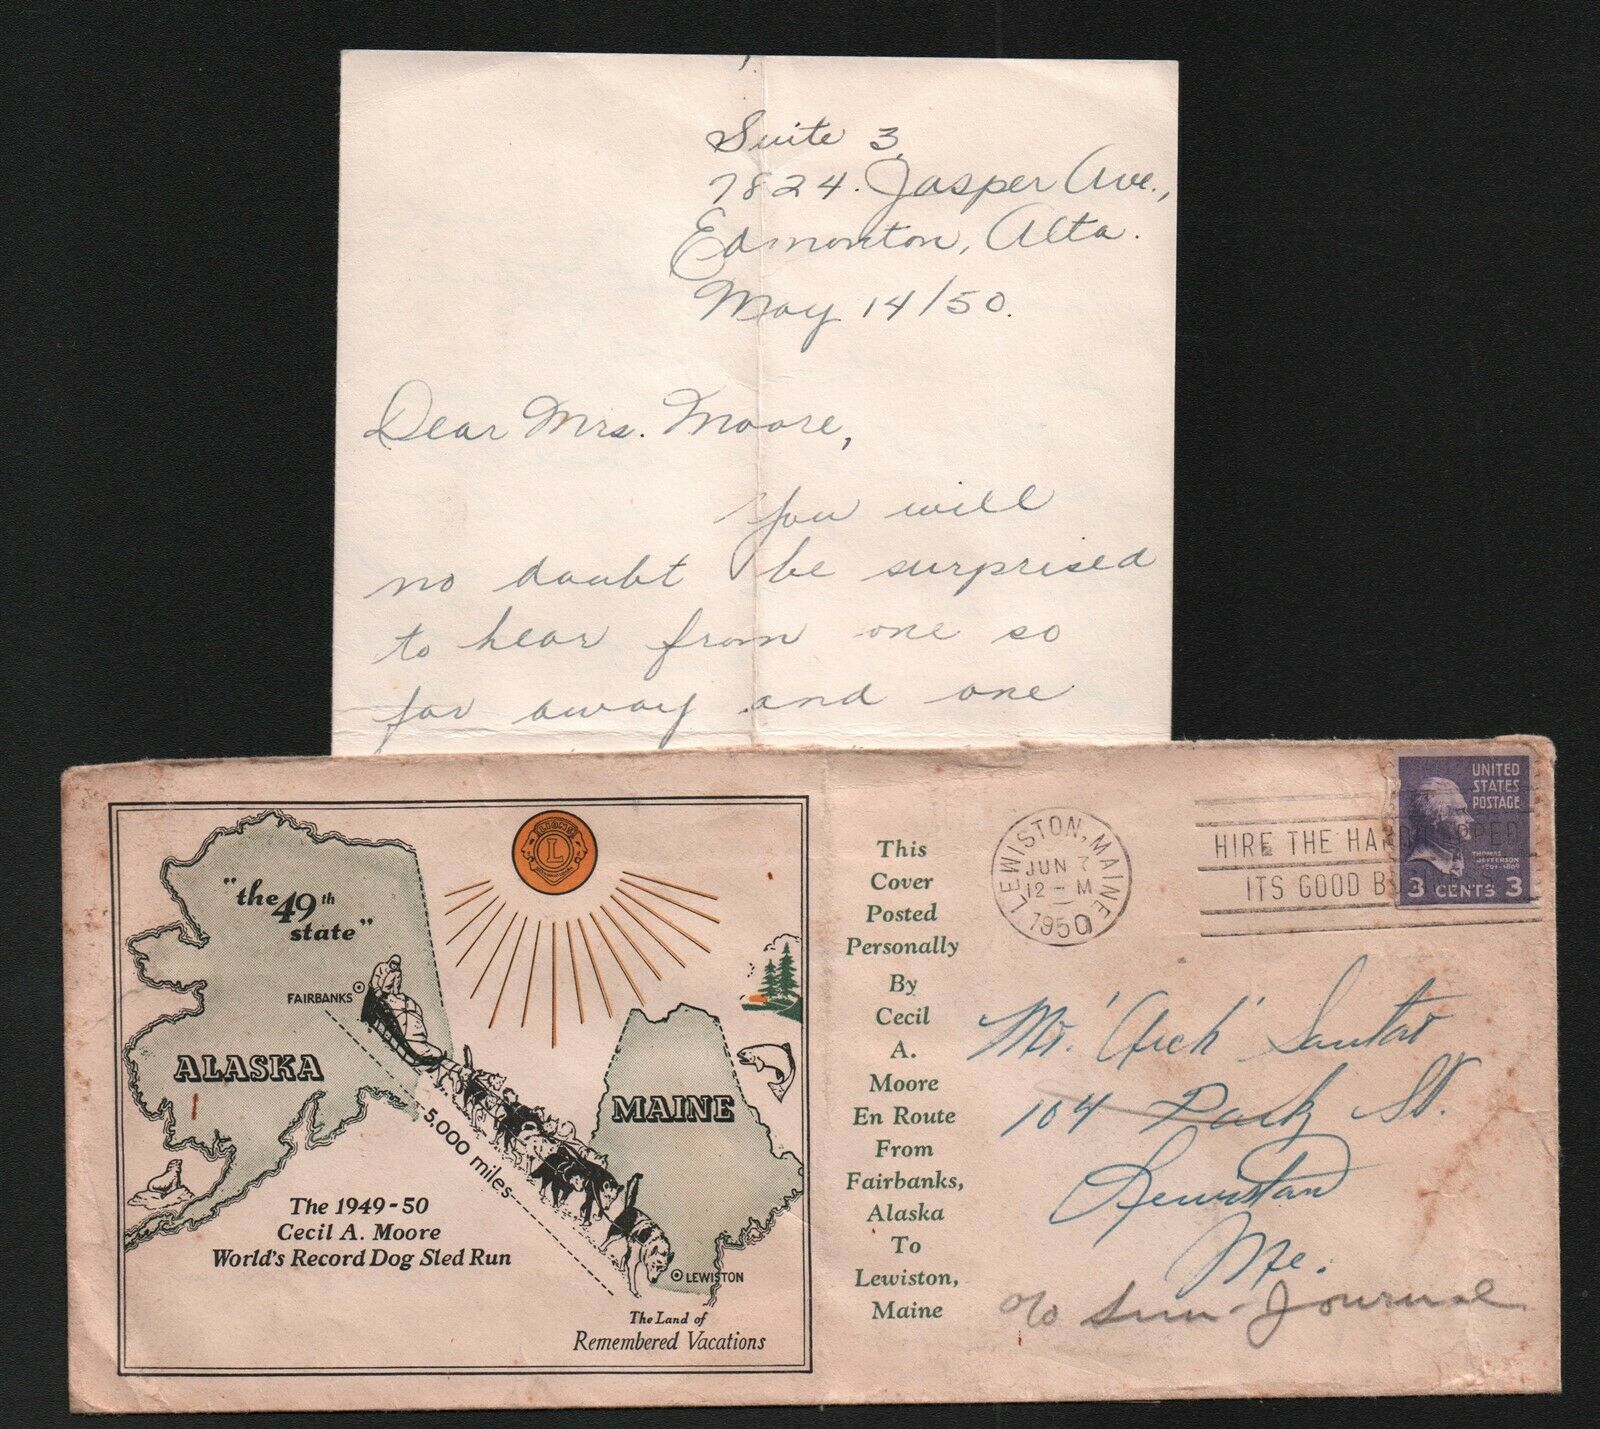 Suite 3,
7824. Jasper Ave.,
Edmonton, Alta.
May 14/50.
Dear Mrs. Moore,
You will
no doubt be surprised
to hear from one so
far away and one
"the 49th
state"
FAIRBANKS
ALASKA
LIONS
L
INTERNATIONAL
MAINE
5,000 miles
The 1949-50
Cecil A. Moore
World's Record Dog Sled Run
LEWISTON
The Land of
Remembered Vacations
This
Cover
Posted
Personally
By
Cecil
A.
Moore
En Route
From
Fairbanks,
Alaska
To
Lewiston,
Maine
LEWISTON, MAINE
JUN 7
12 – M
1950
HIRE THE HANDICAPPED
ITS GOOD B
UNITED
STATES
POSTAGE
THOMAS
JEFFERSON
1801-1809
3 CENTS 3
Mr. 'Arch'
104 Park St.
Lewiston
Me.
c/o Sun-Journal